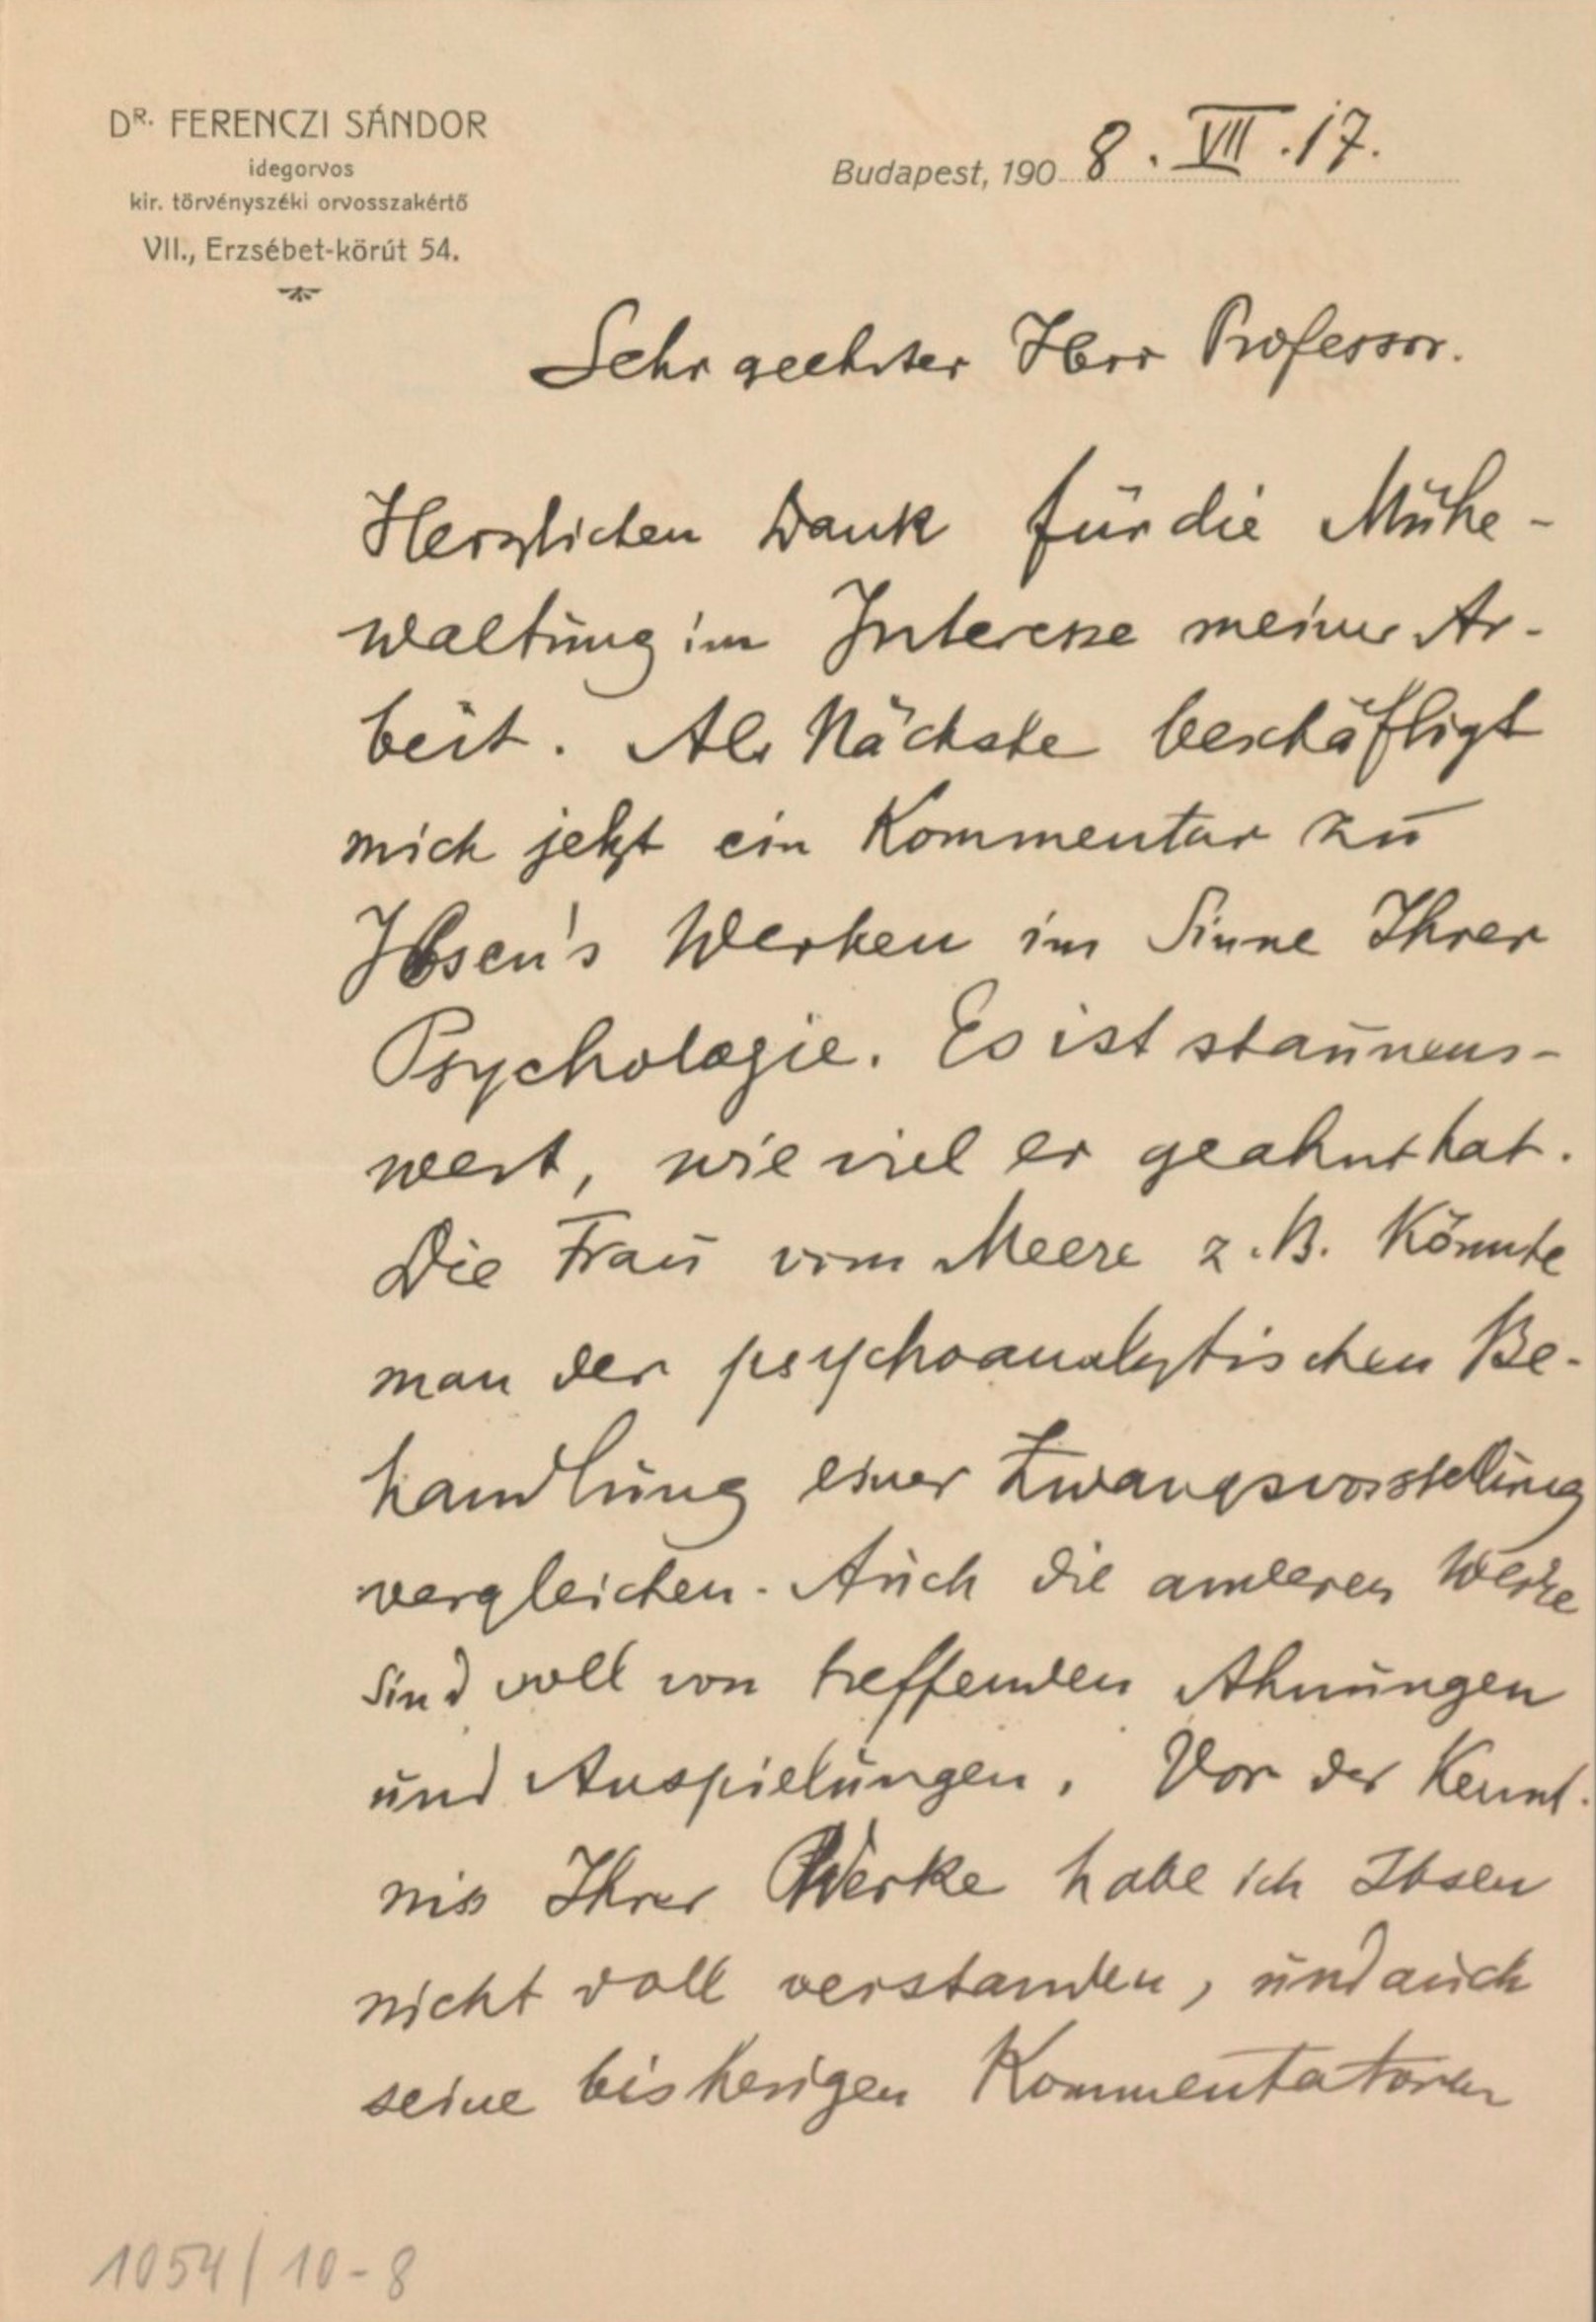 DR. FERENCZI SÁNDOR
idegorvos
kir. törvényszéki orvosszakértő
VII., Erzsébet-körút 54.
Budapest, 1908. VII. 17.
Sehr geehrter Herr Professor.
Herzlichen Dank für die Mühe-
waltung im Interesse meiner Ar-
beit. Als Nächste beschäftigt
mich jetzt ein Kommentar zu
Ibsen's Werken im Sinne Ihrer
Psychologie. Es ist staunens-
wert, wie viel er geahnt hat.
Die Frau vom Meere z.B. könnte
man der psychoanalytischen Be-
handlung einer Zwangsvorstellung
vergleichen. Auch die anderen Werke
sind voll von treffenden Ahnungen
und Anspielungen. Vor der Kennt-
nis Ihrer Werke habe ich Ibsen
nicht voll verstanden, und auch
seine bisherigen Kommentatoren
1054/10-8